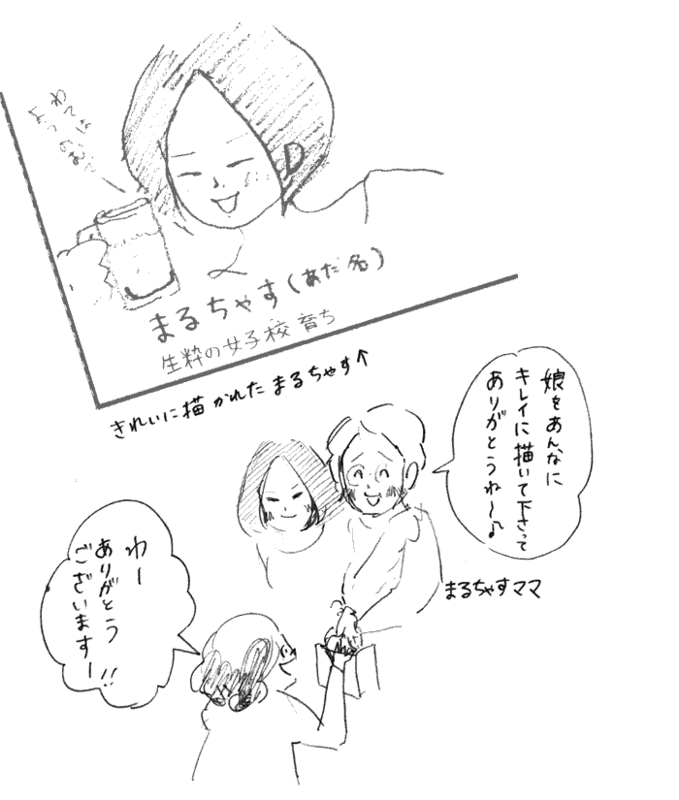 わてはよう
のむで
まるちゃす(あだ名)
生粋の女子校育ち
きれいに描かれたまるちゃす↑
娘をあんなに
キレイに描いて下さって
ありがとうね〜♪
まるちゃすママ
わー
ありがとう
ございますー!!